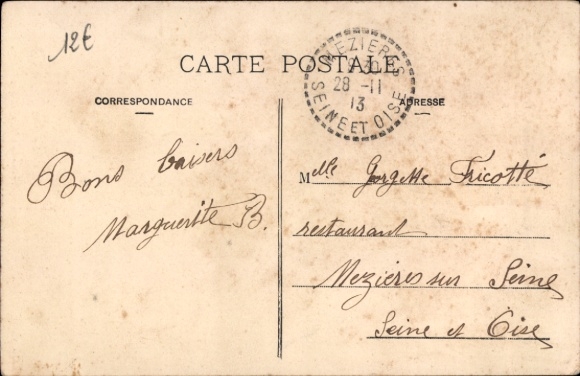 12€
CARTE POSTALE
MEZIERES
28 -11
13
SEINE ET OISE
CORRESPONDANCE
ADRESSE
Bons baisers
Marguerite B.
Melle Gorgette Fricotté
restaurant
Mezières sur Seine
Seine et Oise